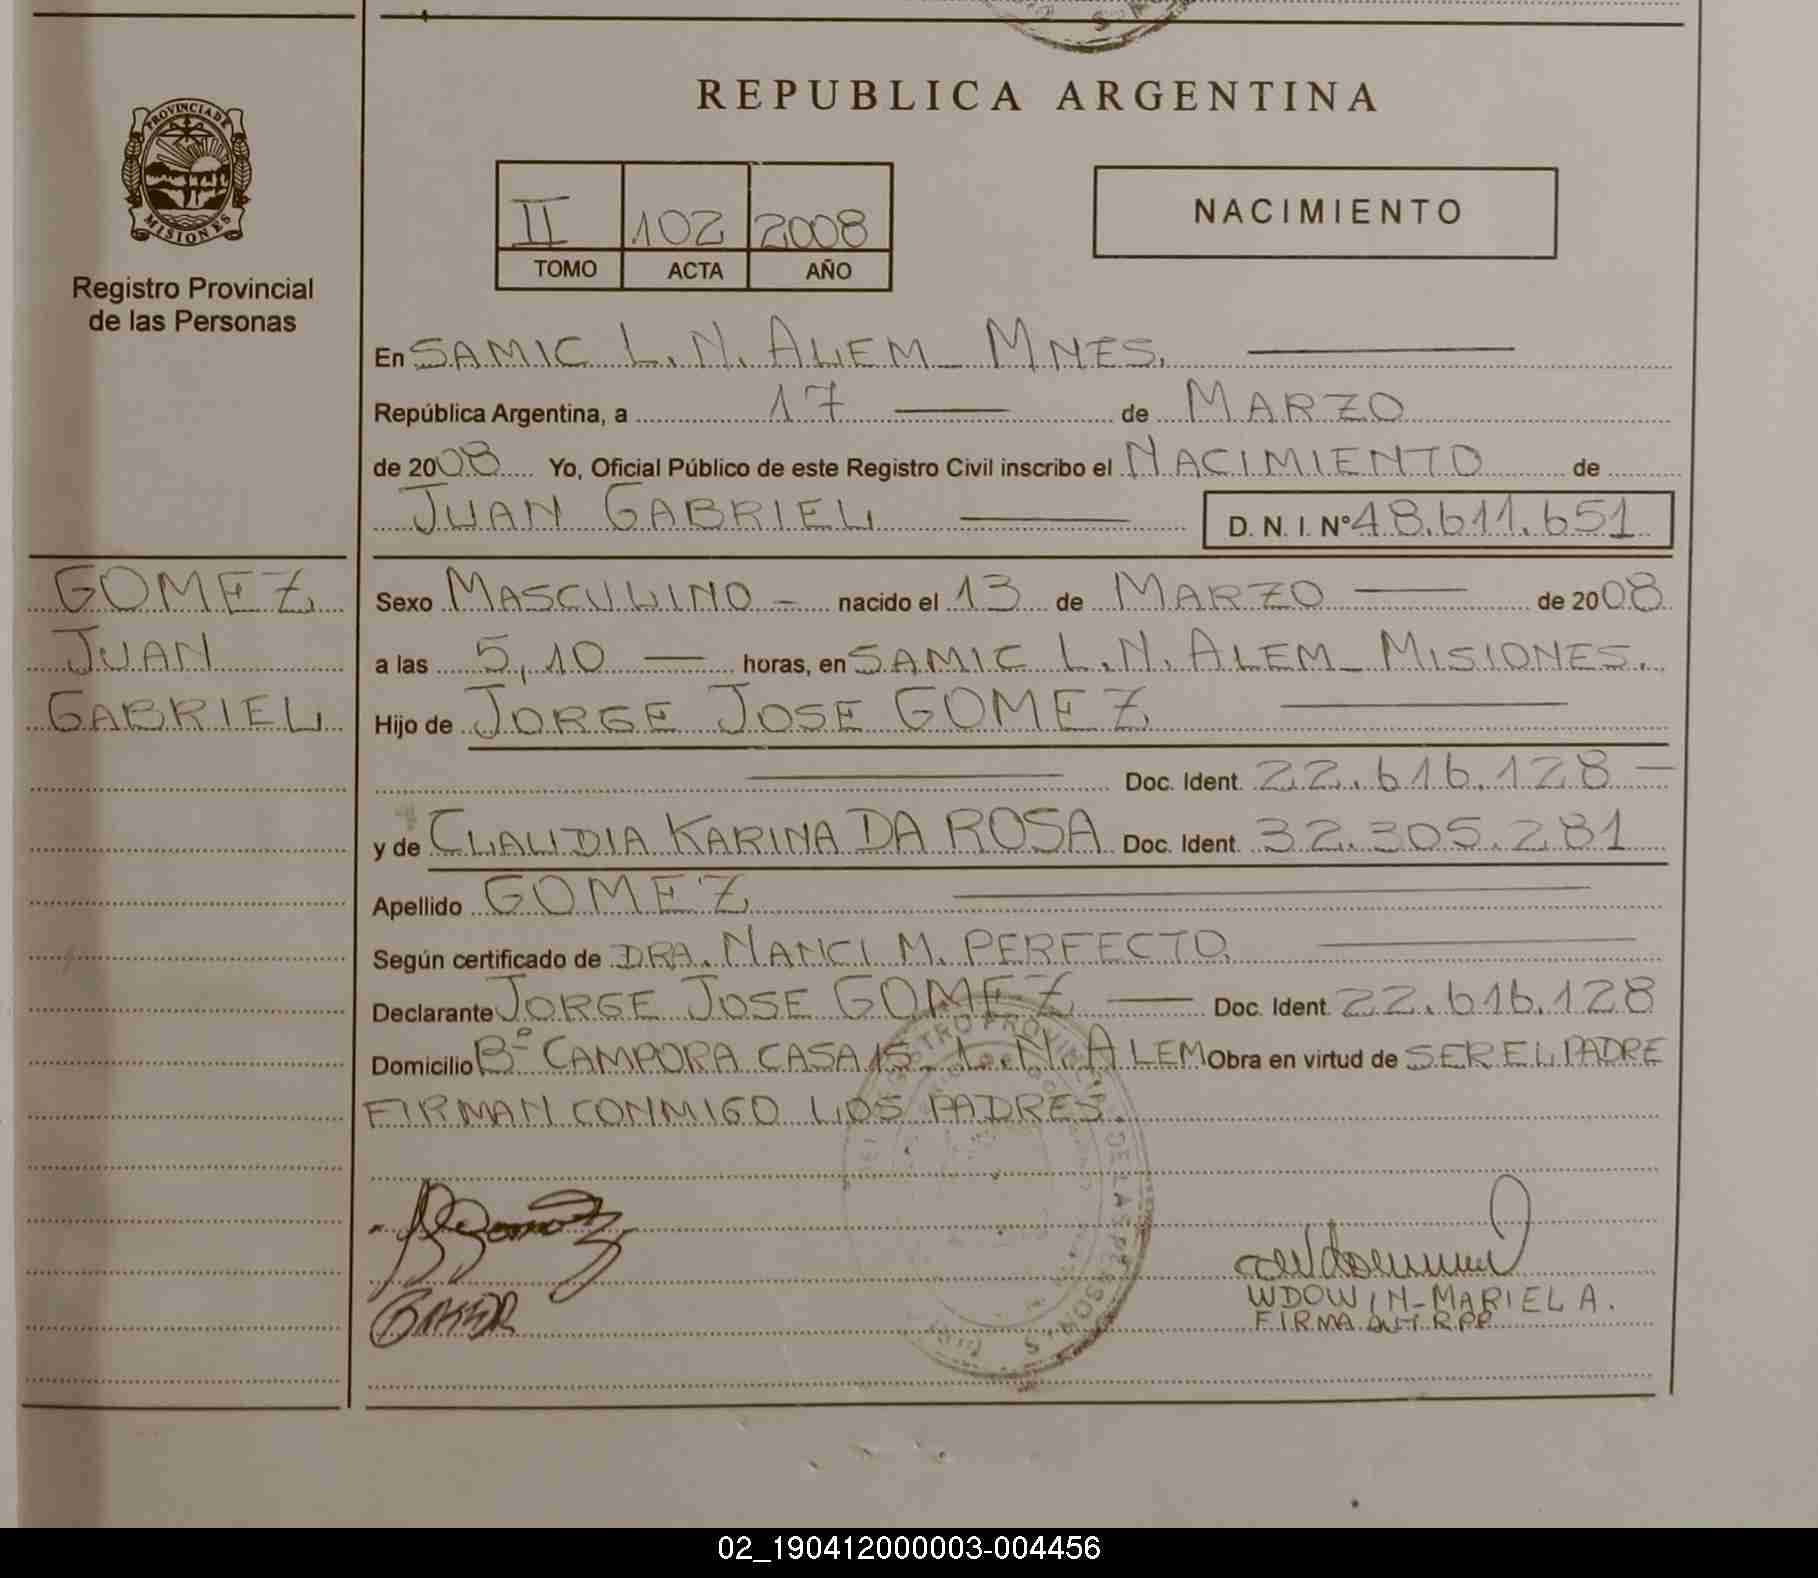 REPUBLICA ARGENTINA
PROVINCIA DE
MISIONES
Registro Provincial
de las Personas
II 102 2008
TOMO ACTA AÑO
NACIMIENTO
En SAMIC L.N. ALEM_ MNES.
República Argentina, a 17 de MARZO
de 2008 Yo, Oficial Público de este Registro Civil inscribo el NACIMIENTO de
JUAN GABRIEL D. N. I. N° 48.611.651
GOMEZ
JUAN
GABRIEL
Sexo MASCULINO - nacido el 13 de MARZO de 2008
a las 5,10 horas, en SAMIC L.N. ALEM_ MISIONES.
Hijo de JORGE JOSE GOMEZ
Doc. Ident. 22.616.128
y de CLAUDIA KARINA DA ROSA Doc. Ident. 32.305.281
Apellido GOMEZ
Según certificado de DRA. NANCI M. PERFECTO
Declarante JORGE JOSE GOMEZ Doc. Ident. 22.616.128
Domicilio Bº CAMPORA CASA 15. L.N. ALEM Obra en virtud de SER EL PADRE
FIRMAN CONMIGO LOS PADRES.
WDOWIN-MARIEL A.
FIRMA AUT. RPP
02_190412000003-004456